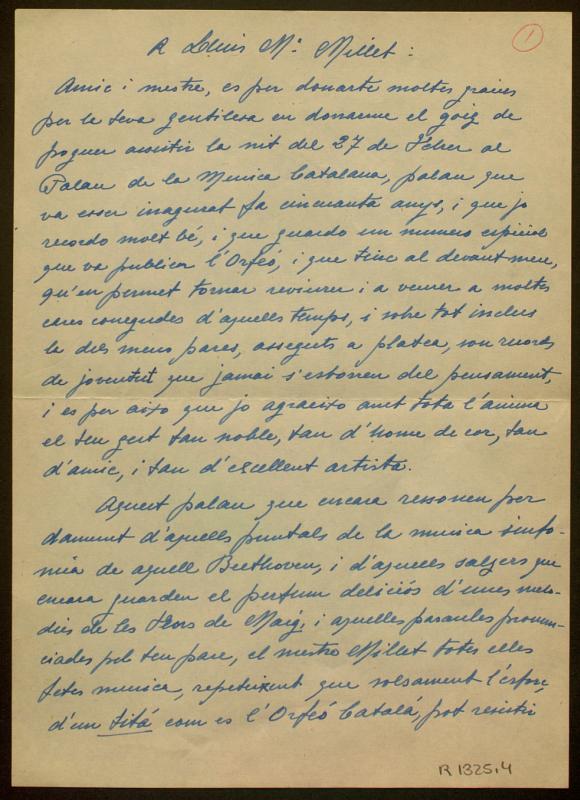 1
A Lluis Mª Millet:
Amic i mestre, es per donarte moltes gracies
per la teva gentilesa en donarme el goig de
poguer assistir la nit del 27 de Febrer al
Palau de la Musica Catalana, palau que
va esser inagurat fa cincuanta anys, i que jo
recordo molt bé, i que guardo un numero especial
que va publicar l'Orfeó, i que tinc al devant meu,
qu'em permet tornar reviurer i a veurer a moltes
cares conegudes d'aquells temps, i sobre tot inclus
la dels meus pares, asseguts a platea, son records
de joventut que jamai s'esborren del pensament,
i es per aixo que jo agraeixo amt tota l'anima
el teu gest tan noble, tan d'home de cor, tan
d'amic, i tan d'excellent artista.
Aquest palau que encara ressonen per
damunt d'aquells puntals de la musica sinfo-
nia de aquell Beethoven, i d'aquells salzers que
encara guarden el perfum deliciós d'unes melo-
dies de les Flors de Maig, i aquelles paraules pronun-
ciades pel teu pare, el mestre Millet totes elles
fetes musica, repetixent que solsament l'esforç
d'un titá com es l'Orfeó Catalá, pot resistir
R 1325,4